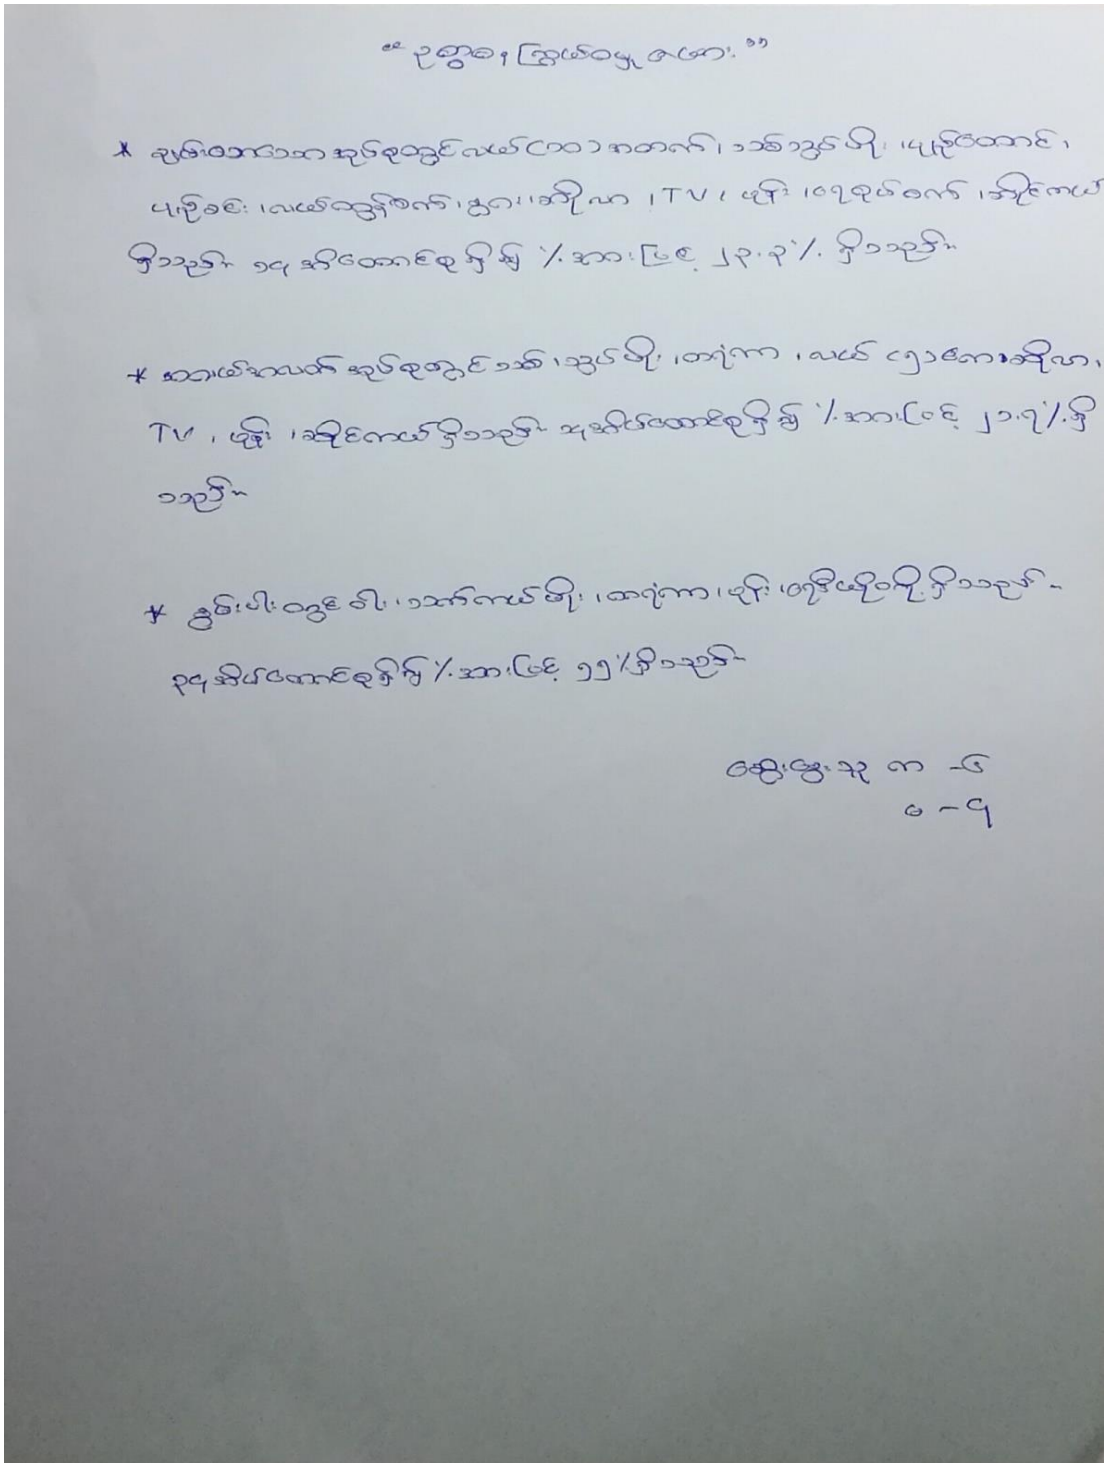 “ ဥစ္စာဓန ကြွယ်ဝမှု ဇယား ”
* ချမ်းသာသော အုပ်စုတွင် လယ် (၁၀) အထက်၊ သစ်သွပ်မိုး၊ ပျဉ်ထောင်၊
ပျဉ်ခင်း၊ လယ်ထွန်စက်၊ နွား၊ ဆိုလာ၊ TV၊ ဖုန်း၊ ရေစုပ်စက်၊ ဆိုင်ကယ်
ရှိသည်။ ၁၄ အိမ်ထောင်စုရှိ၍ % အားဖြင့် ၂၃.၃% ရှိသည်။
* အလယ်အလတ် အုပ်စုတွင် သစ်၊ သွပ်မိုး၊ ထရံကာ၊ လယ် ၎ ဆိုလာ၊
TV၊ ဖုန်း၊ ဆိုင်ကယ် ရှိသည်။ အိမ်ထောင်စုရှိ၍ % အားဖြင့် ၂၁.၇% ရှိ
သည်။
* နွမ်းပါးတွင် ဝါး၊ သက်ကယ်မိုး၊ ထရံကာ၊ ဖုန်း၊ ရေဒီယိုတို့ ရှိသည်။
အိမ်ထောင်စုရှိ၍ % အားဖြင့် ၅၅% ရှိသည်။
ဆွေးနွေးသူ ကာ - ၆
မ - ၄